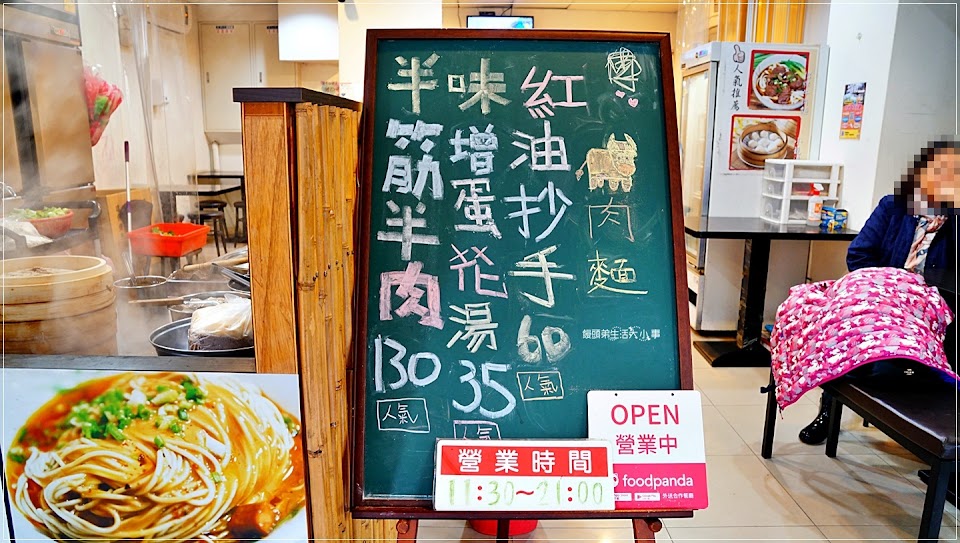 肉麵
紅油抄手
60
人氣
味增蛋花湯
35
人氣
半筋半肉
130
人氣
饅頭弟生活大小事
OPEN
營業中
foodpanda
外送合作餐廳
營業時間
11:30~21:00
人氣推薦